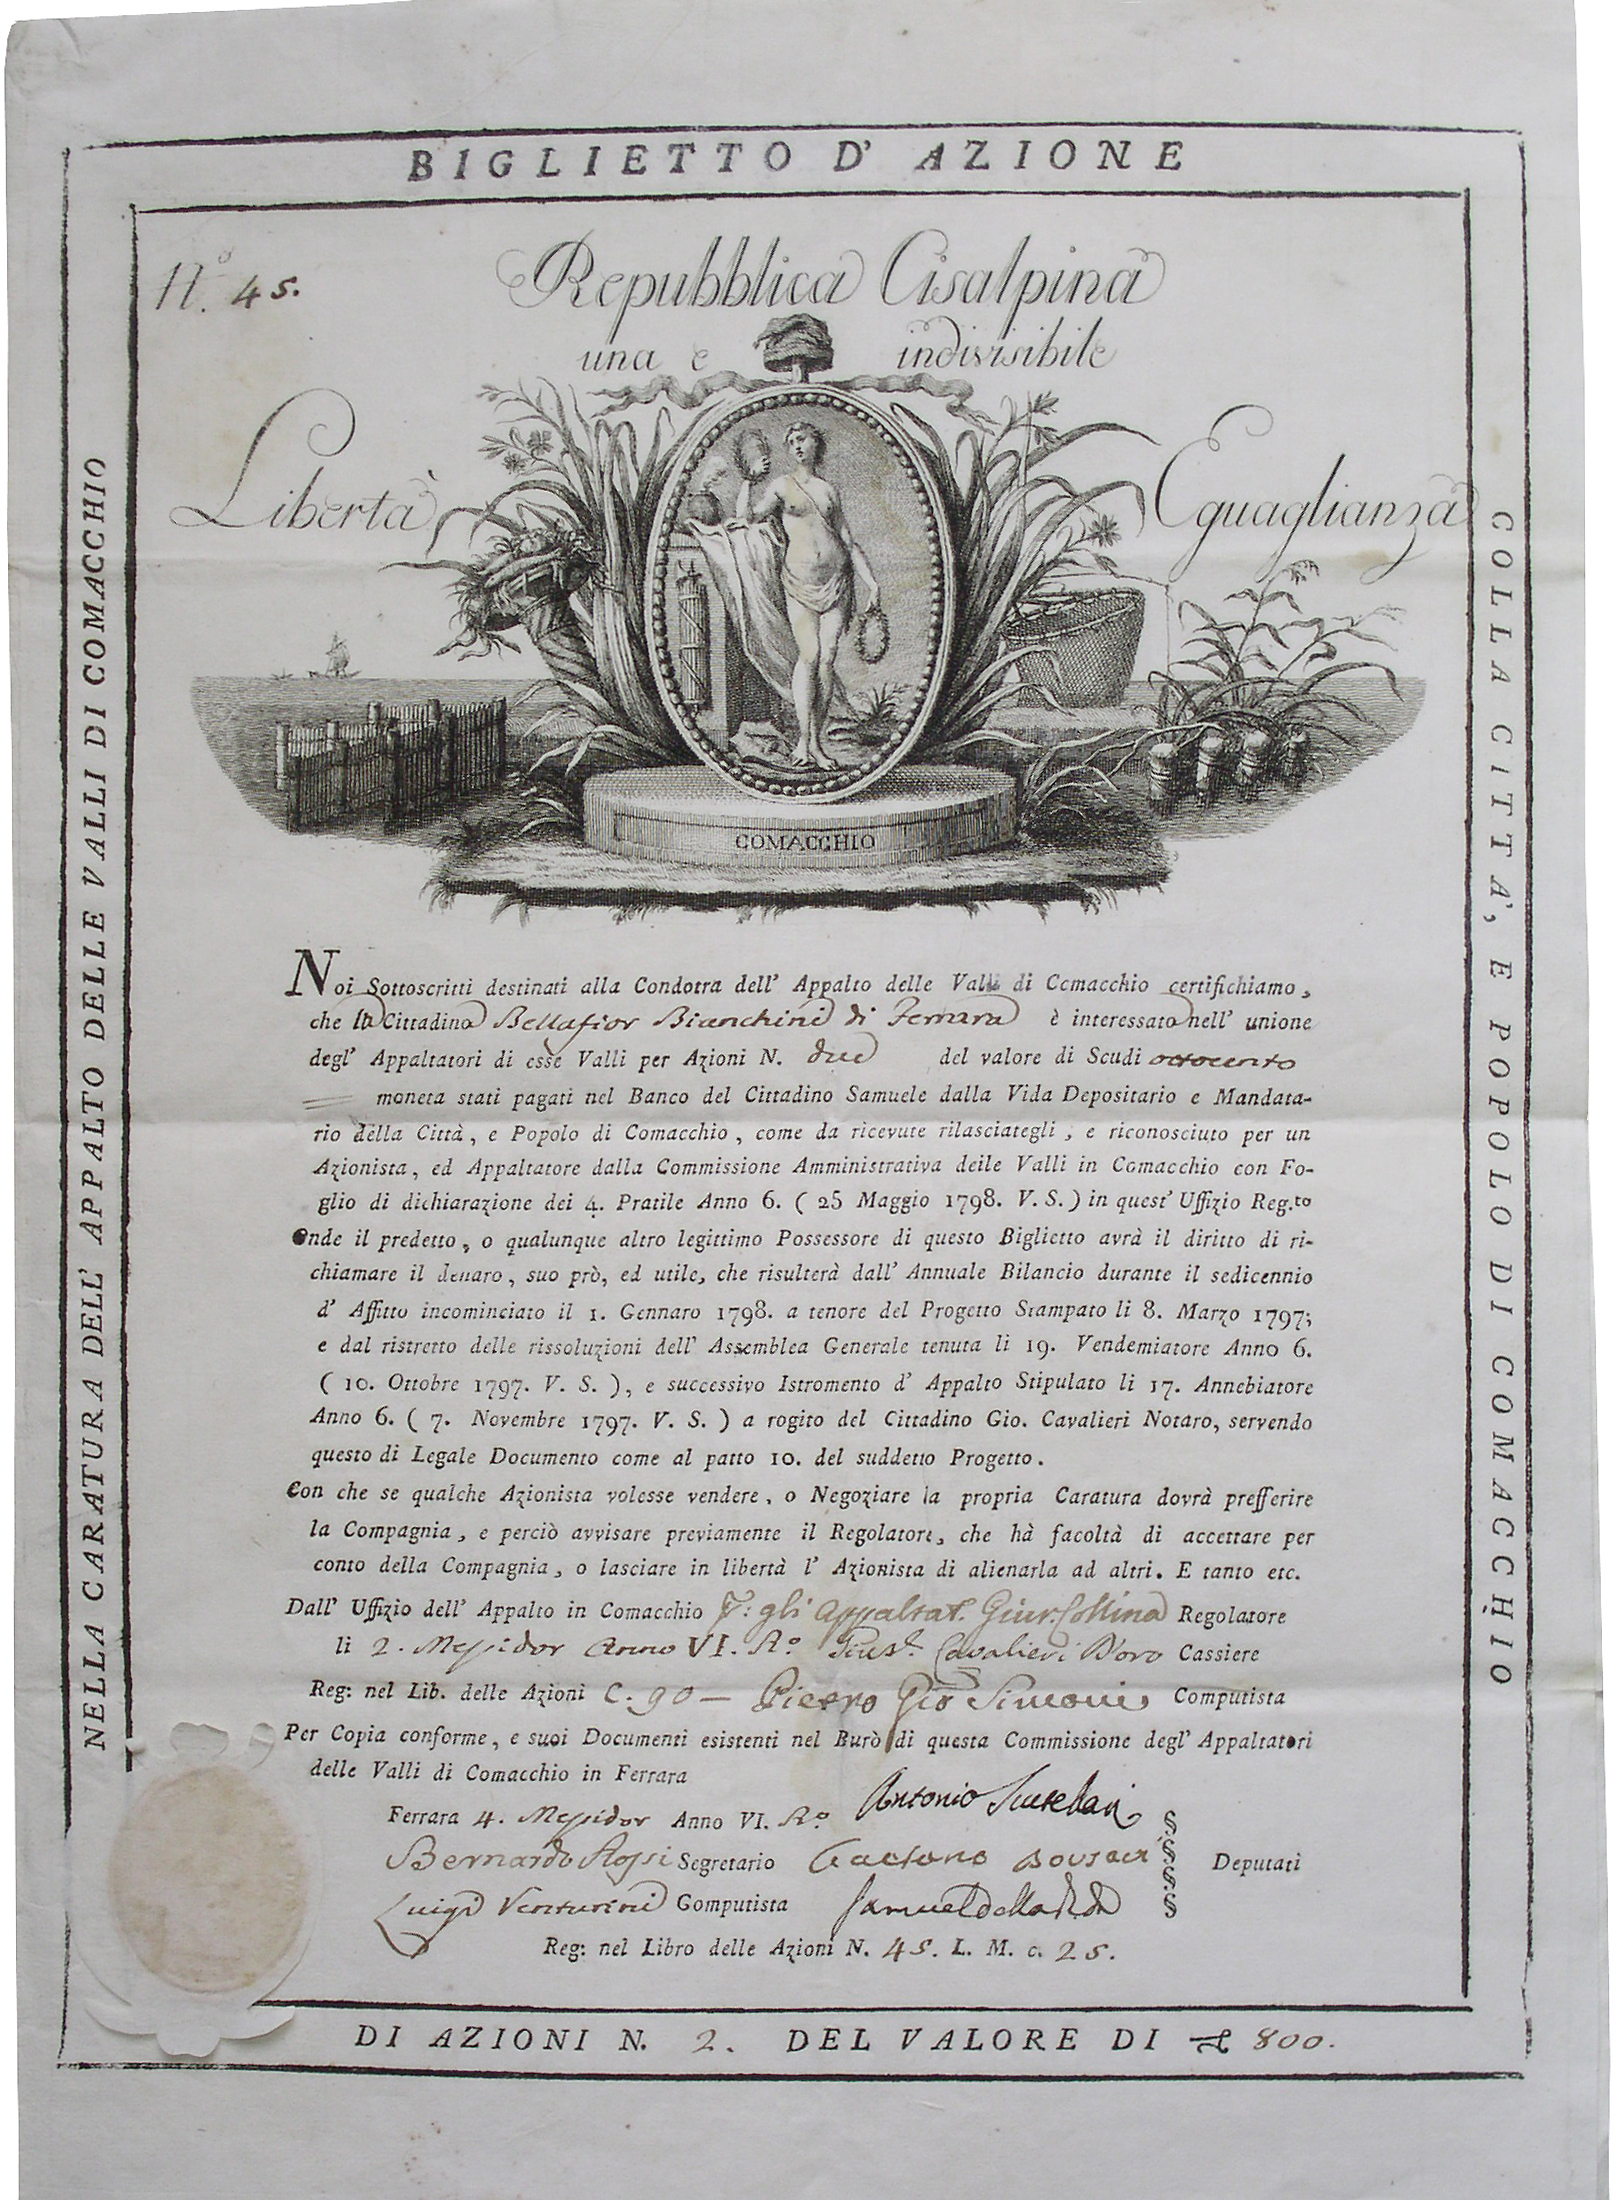 BIGLIETTO D' AZIONE
NELLA CARATURA DELL' APPALTO DELLE VALLI DI COMACCHIO
COLLA CITTA', E POPOLO DI COMACCHIO
N.º 45.
Repubblica Cisalpina
una e indivisibile
Libertà Eguaglianza
COMACCHIO
Noi Sottoscritti destinati alla Condotta dell' Appalto delle Valli di Comacchio certifichiamo,
che la Cittadina Bellafior Bianchini di Ferrara è interessata nell' unione
degl' Appaltatori di esse Valli per Azioni N. due del valore di Scudi ottocento
moneta stati pagati nel Banco del Cittadino Samuele dalla Vida Depositario e Mandata-
rio della Città, e Popolo di Comacchio, come da ricevute rilasciategli, e riconosciuto per un
Azionista, ed Appaltatore dalla Commissione Amministrativa delle Valli in Comacchio con Fo-
glio di dichiarazione dei 4. Pratile Anno 6. ( 25 Maggio 1798. V. S. ) in quest' Uffizio Reg.to
Onde il predetto, o qualunque altro legittimo Possessore di questo Biglietto avrà il diritto di ri-
chiamare il denaro, suo prò, ed utile, che risulterà dall' Annuale Bilancio durante il sedicennio
d' Affitto incominciato il 1. Gennaro 1798. a tenore del Progetto Stampato li 8. Marzo 1797;
e dal ristretto delle rissoluzioni dell' Assemblea Generale tenuta li 19. Vendemiatore Anno 6.
( 10. Ottobre 1797. V. S. ), e successivo Istromento d' Appalto Stipulato li 17. Annebiatore
Anno 6. ( 7. Novembre 1797. V. S. ) a rogito del Cittadino Gio. Cavalieri Notaro, servendo
questo di Legale Documento come al patto 10. del suddetto Progetto.
Con che se qualche Azionista volesse vendere, o Negoziare la propria Caratura dovrà prefferire
la Compagnia, e perciò avvisare previamente il Regolatore, che hà facoltà di accettare per
conto della Compagnia, o lasciare in libertà l' Azionista di alienarla ad altri. E tanto etc.
Dall' Uffizio dell' Appalto in Comacchio P: gli Appaltat. Gius. Collina Regolatore
li 2. Messidor Anno VI. Rº Gius. Cavalieri D'oro Cassiere
Reg: nel Lib. delle Azioni C. 90 — Pietro Gio Simoni Computista
Per Copia conforme, e suoi Documenti esistenti nel Burò di questa Commissione degl' Appaltatori
delle Valli di Comacchio in Ferrara
Ferrara 4. Messidor Anno VI. Rº Antonio
Bernardo Rossi Segretario Gaetano Deputati
Luigi Venturini Computista Samuel della Vida
Reg: nel Libro delle Azioni N. 45. L. M. c. 25.
DI AZIONI N. 2. DEL VALORE DI 800.